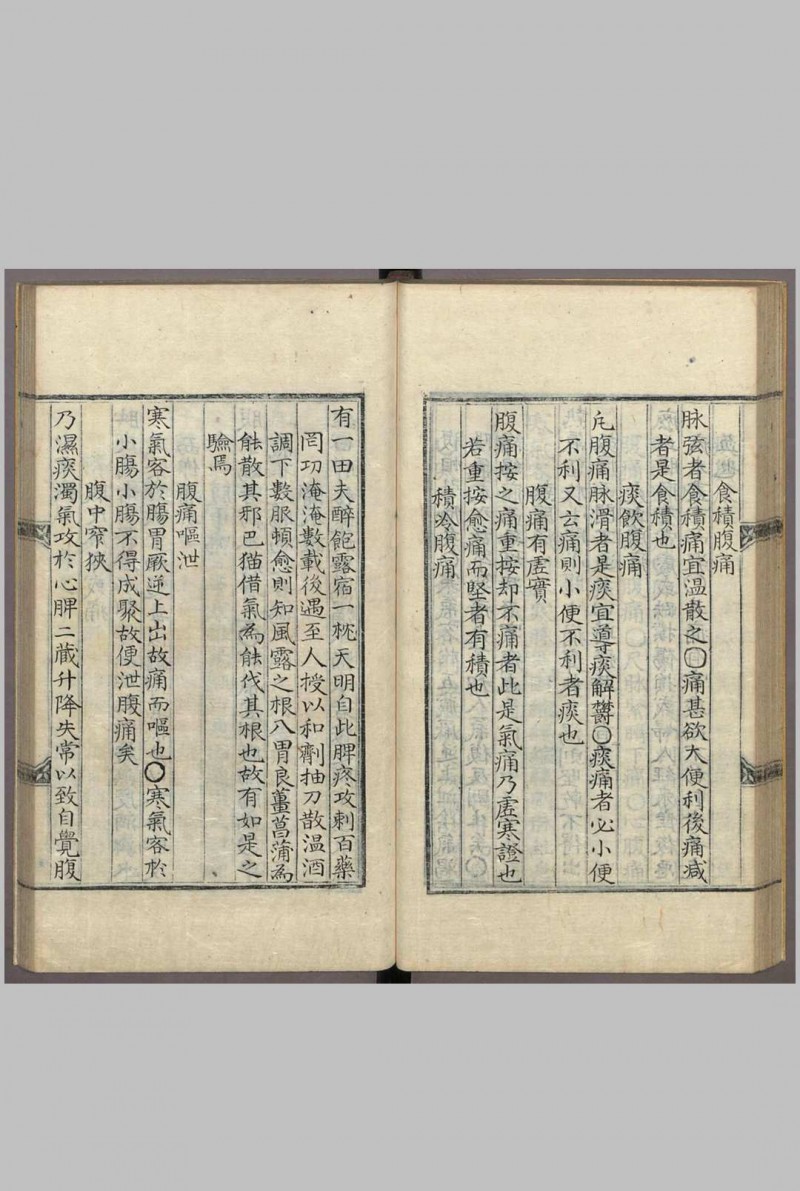 食積腹痛
脉弦者食積痛宜温散之〇痛甚欲大便利後痛减
者是食積也
痰飲腹痛
凡腹痛脉滑者是痰宜導痰解欝〇痰痛者必小便
不利又云痛則小便不利者痰也
腹痛有虛實
腹痛按之痛重按却不痛者此是氣痛乃虛寒證也
若重按愈痛而堅者有積也
積冷腹痛
有一田夫醉飽露宿一枕天明自此脾疼攻刺百藥
罔功淹淹數載後遇至人授以和劑抽刀散温酒
調下數服頓愈則知風露之根入胃良薑菖蒲為
能散其邪巴猫借氣為能伐其根也故有如是之
驗焉
腹痛嘔泄
寒氣客於腸胃厥逆上出故痛而嘔也〇寒氣客於
小腸小腸不得成聚故便泄腹痛矣
腹中窄狹
乃濕痰濁氣攻於心脾二藏升降失常以致自覺腹